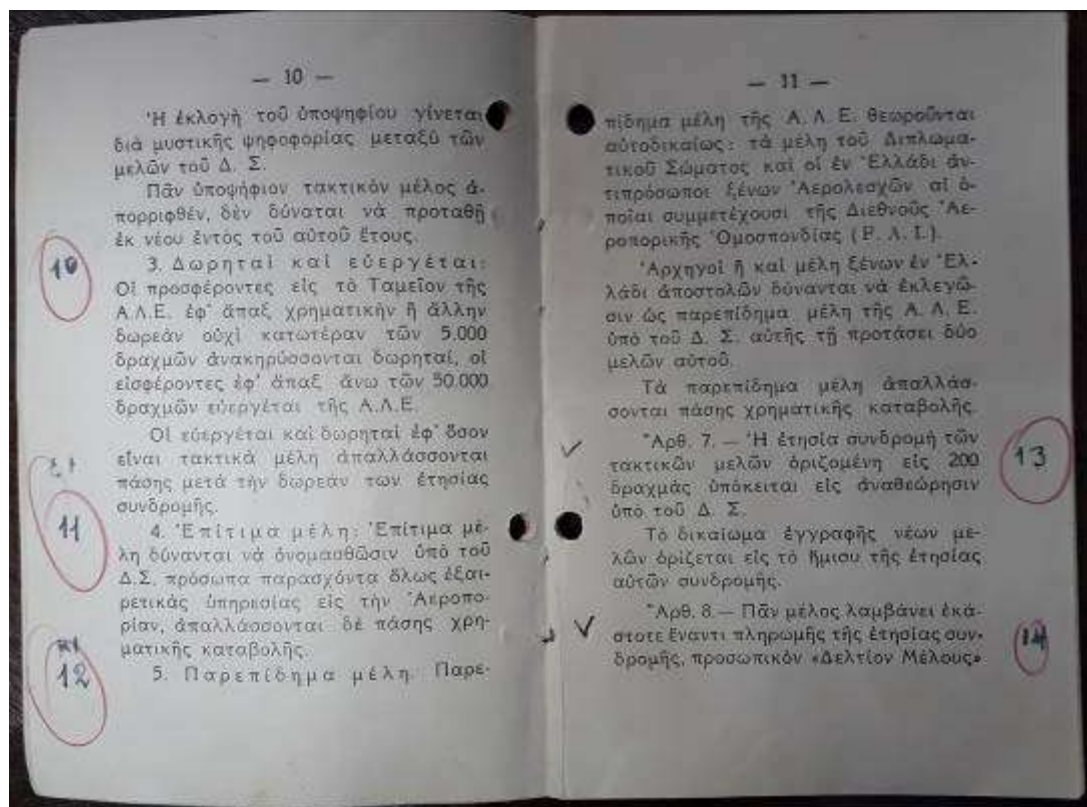 — 10 —
Ἡ ἐκλογὴ τοῦ ὑποψηφίου γίνεται
διὰ μυστικῆς ψηφοφορίας μεταξὺ τῶν
μελῶν τοῦ Δ. Σ.
Πᾶν ὑποψήφιον τακτικὸν μέλος ἀ-
πορριφθέν, δὲν δύναται νὰ προταθῇ
ἐκ νέου ἐντὸς τοῦ αὐτοῦ ἔτους.
10
3. Δωρηταὶ καὶ εὐεργέται:
Οἱ προσφέροντες εἰς τὸ Ταμεῖον τῆς
Α.Λ.Ε. ἐφ' ἅπαξ χρηματικὴν ἢ ἄλλην
δωρεὰν οὐχὶ κατωτέραν τῶν 5.000
δραχμῶν ἀνακηρύσσονται δωρηταί, οἱ
εἰσφέροντες ἐφ' ἅπαξ ἄνω τῶν 50.000
δραχμῶν εὐεργέται τῆς Α.Λ.Ε.
Οἱ εὐεργέται καὶ δωρηταὶ ἐφ' ὅσον
εἶναι τακτικὰ μέλη ἀπαλλάσσονται
πάσης μετὰ τὴν δωρεάν των ἐτησίας
συνδρομῆς.
11
4. Ἐπίτιμα μέλη: Ἐπίτιμα μέ-
λη δύνανται νὰ ὀνομασθῶσιν ὑπὸ τοῦ
Δ.Σ. πρόσωπα παρασχόντα ὅλως ἐξαι-
ρετικὰς ὑπηρεσίας εἰς τὴν Ἀεροπο-
ρίαν, ἀπαλλάσσονται δὲ πάσης χρη-
ματικῆς καταβολῆς.
12
5. Παρεπίδημα μέλη: Παρε-
— 11 —
πίδημα μέλη τῆς Α. Λ. Ε. θεωροῦνται
αὐτοδικαίως: τὰ μέλη τοῦ Διπλωμα-
τικοῦ Σώματος καὶ οἱ ἐν Ἑλλάδι ἀν-
τιπρόσωποι ξένων Ἀερολεσχῶν αἱ ὁ-
ποῖαι συμμετέχουσι τῆς Διεθνοῦς Ἀε-
ροπορικῆς Ὁμοσπονδίας (F. A. I.).
Ἀρχηγοὶ ἢ καὶ μέλη ξένων ἐν Ἑλ-
λάδι ἀποστολῶν δύνανται νὰ ἐκλεγῶ-
σιν ὡς παρεπίδημα μέλη τῆς Α. Λ. Ε.
ὑπὸ τοῦ Δ. Σ. αὐτῆς τῇ προτάσει δύο
μελῶν αὐτοῦ.
Τὰ παρεπίδημα μέλη ἀπαλλάσ-
σονται πάσης χρηματικῆς καταβολῆς.
Ἄρθ. 7. — Ἡ ἐτησία συνδρομὴ τῶν
τακτικῶν μελῶν ὁριζομένη εἰς 200
δραχμὰς ὑπόκειται εἰς ἀναθεώρησιν
ὑπὸ τοῦ Δ. Σ.
13
Τὸ δικαίωμα ἐγγραφῆς νέων με-
λῶν ὁρίζεται εἰς τὸ ἥμισυ τῆς ἐτησίας
αὐτῶν συνδρομῆς.
Ἄρθ. 8. — Πᾶν μέλος λαμβάνει ἑκά-
στοτε ἔναντι πληρωμῆς τῆς ἐτησίας συν-
δρομῆς, προσωπικὸν «Δελτίον Μέλους»
14